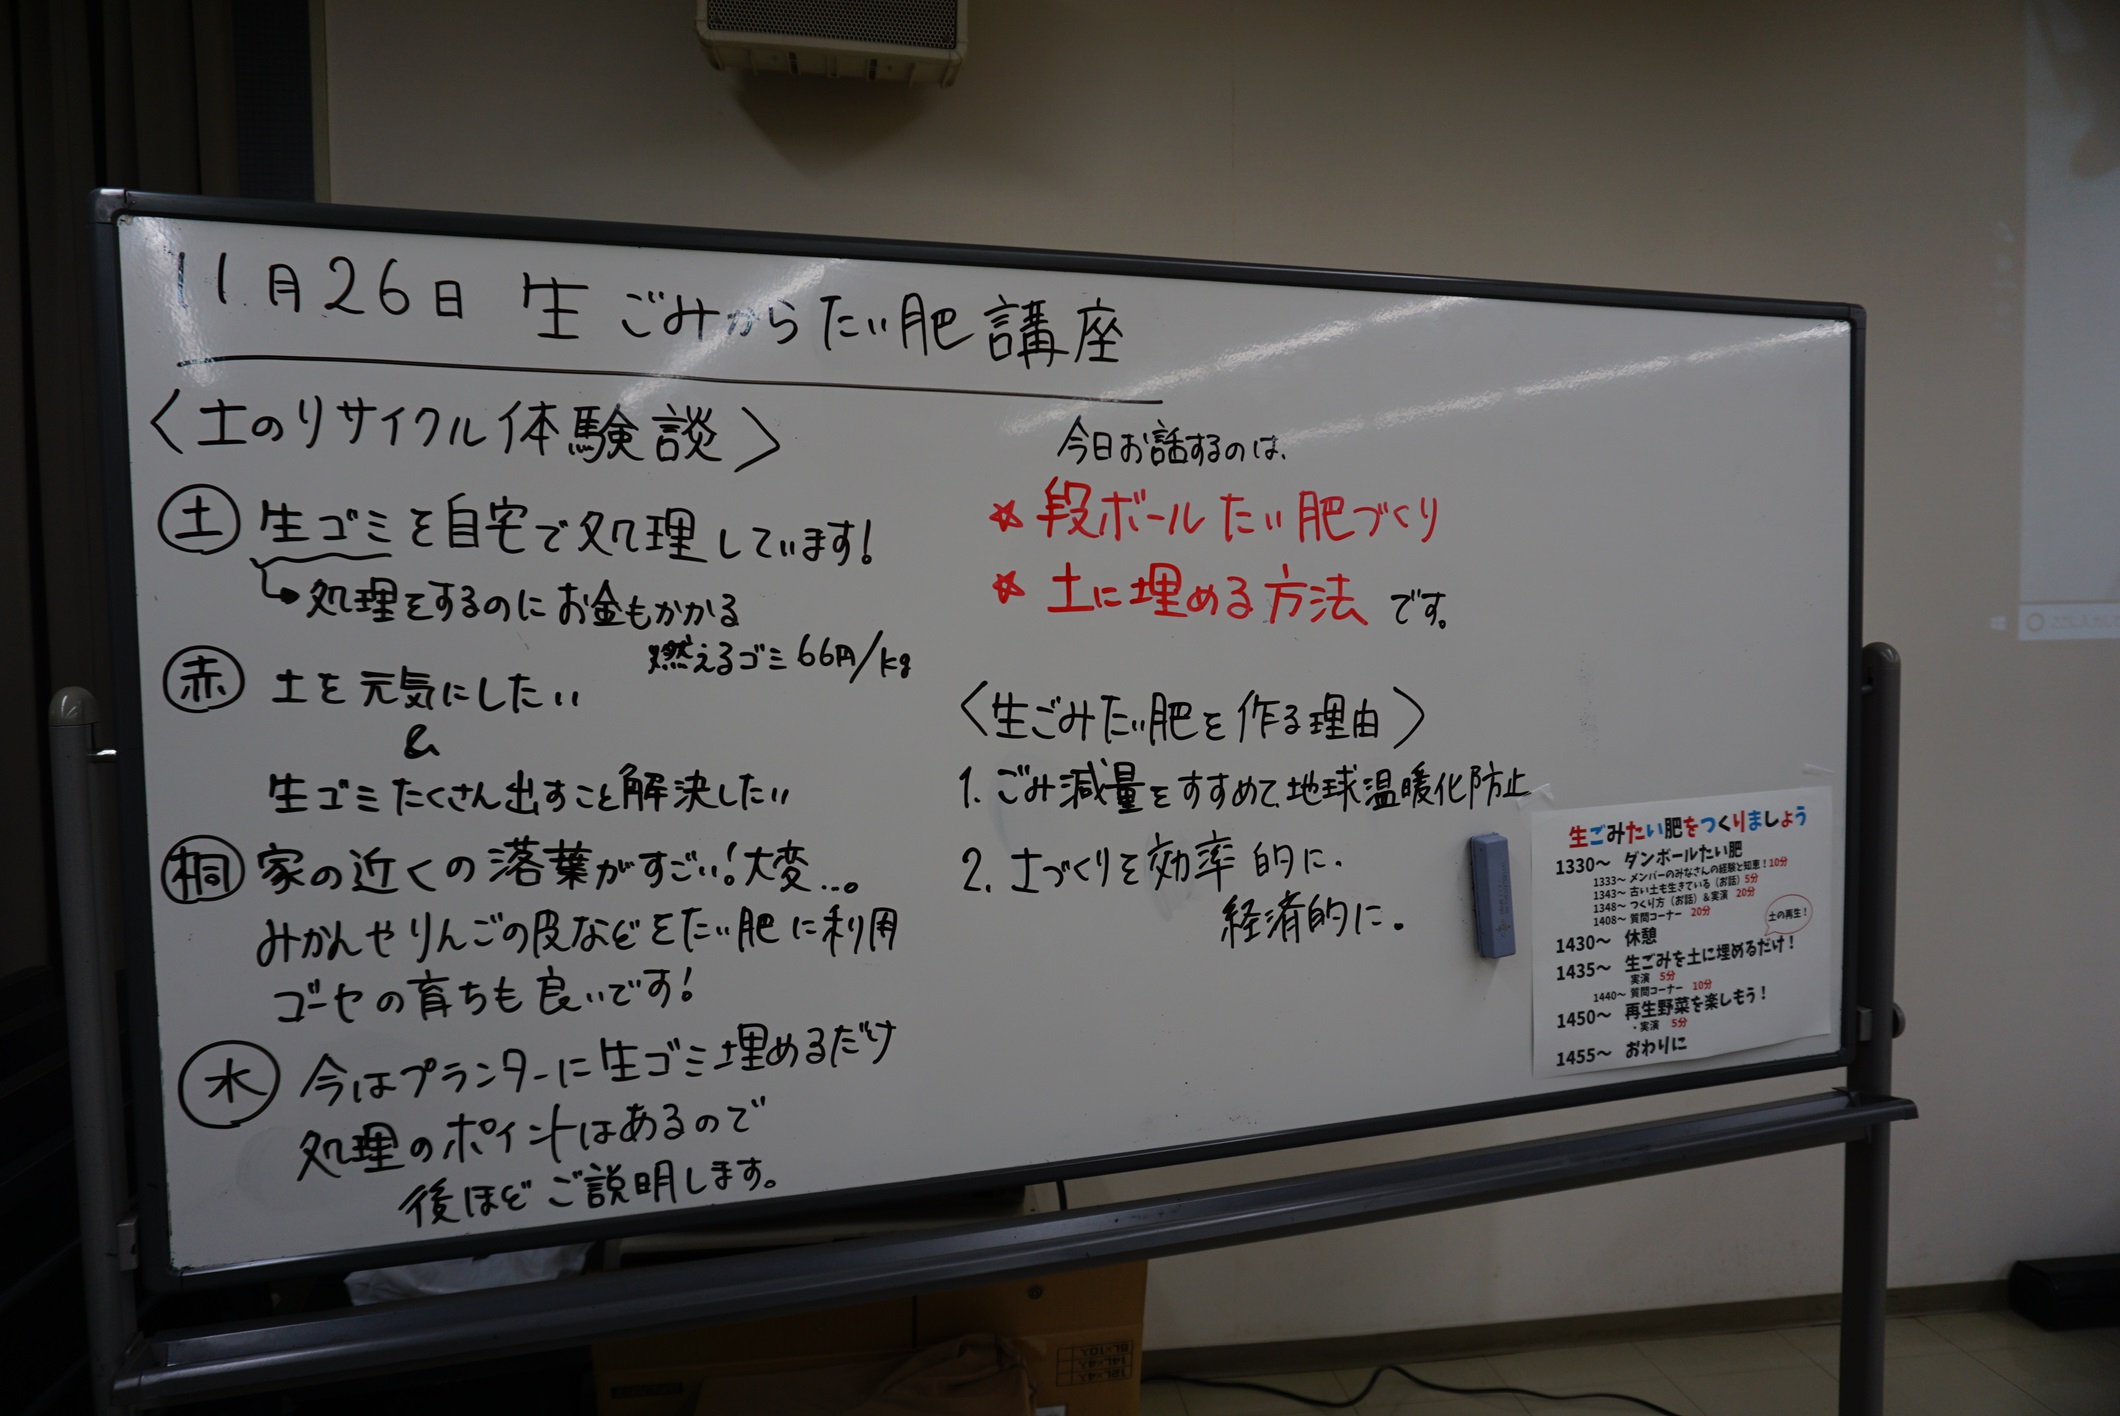 11月26日 生ごみからたい肥講座
〈土のリサイクル体験談〉
土 生ゴミを自宅で処理しています!
処理をするのにお金もかかる
燃えるゴミ66円/kg
赤 土を元気にしたい
&
生ゴミたくさん出すこと解決したい
桐 家の近くの落葉がすごい!大変...。
みかんやりんごの皮などをたい肥に利用
ゴーヤの育ちも良いです!
水 今はプランターに生ゴミ埋めるだけ
処理のポイントはあるので
後ほどご説明します。
今日お話するのは、
☆ 段ボールたい肥づくり
☆ 土に埋める方法 です。
〈生ごみたい肥を作る理由〉
1. ごみ減量をすすめて、地球温暖化防止
2. 土づくりを効率的に、
経済的に。
生ごみたい肥をつくりましょう
1330～ ダンボールたい肥
1333～ メンバーのみなさんの経験と知恵!10分
1343～ 古い土も生きている(お話)5分
1348～ つくり方(お話)&実演 20分
1408～ 質問コーナー 20分
土の再生!
1430～ 休憩
1435～ 生ごみを土に埋めるだけ!
実演 5分
1440～ 質問コーナー 10分
1450～ 再生野菜を楽しもう!
・実演 5分
1455～ おわりに